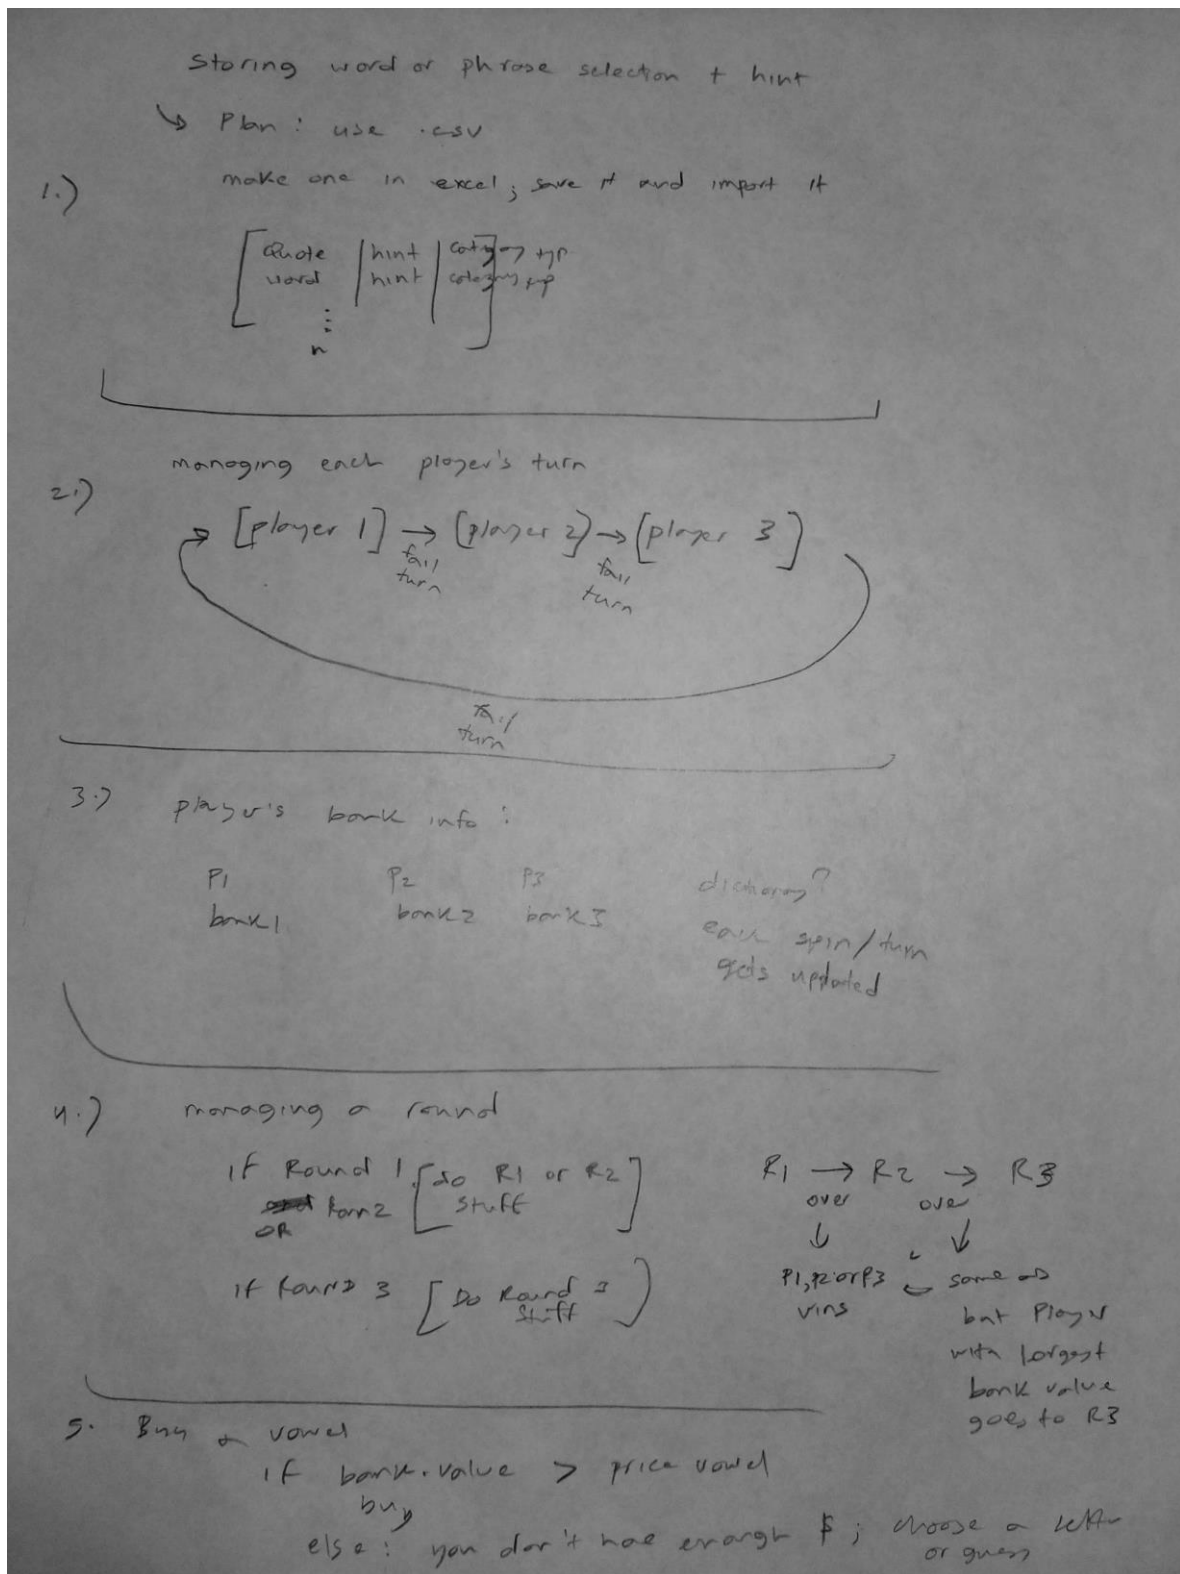 Storing word or phrase selection + hint
↳ Plan: use .csv
1.) make one in excel; save it and import it
[Quote | hint | category typ
word | hint | category typ
⋮
n
2.) managing each player's turn
→ [player 1] → [player 2] → [player 3]
fail turn fail turn
fail
turn
3.) player's bank info:
P1 P2 P3 dictionary?
bank1 bank2 bank3 each spin/turn
gets updated
4.) managing a round
If Round 1 [do R1 or R2 R1 → R2 → R3
OR stuff] over over
↓ ↓
If Round 3 [Do Round 3 P1, P2 or P3 same as
stuff] wins but Player
with largest
bank value
goes to R3
5. Buy a vowel
if bank.value > price vowel
buy
else: you don't hae enough $; choose a letter
or guess